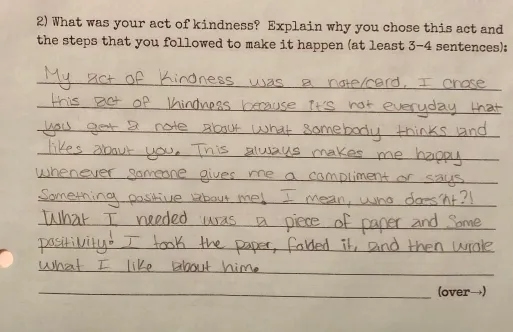 2) What was your act of kindness? Explain why you chose this act and
the steps that you followed to make it happen (at least 3-4 sentences):
My act of kindness was a note/card. I chose
this act of kindness because it's not everyday that
you get a note about what somebody thinks and
likes about you. This always makes me happy
whenever someone gives me a compliment or says
Something positive about me! I mean, who does'nt?!
What I needed was a piece of paper and some
positivity! I took the paper, folded it, and then wrote
what I like about him.
(over→)